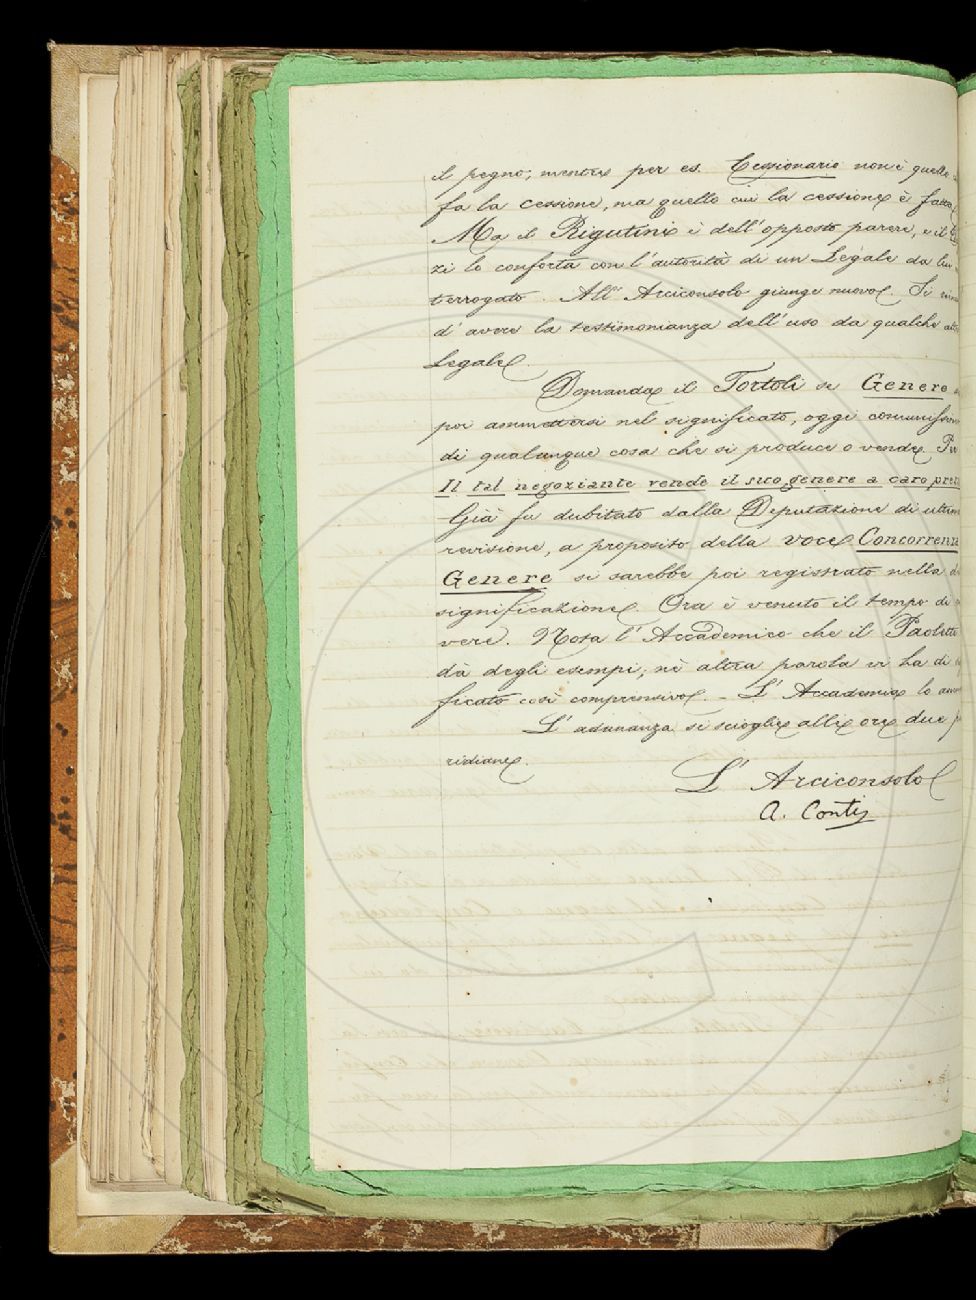 il pegno; mentre per es. Cessionario non è quello
fa la cessione, ma quello cui la cessione è fatta
Ma il Rigutini è dell'opposto parere, e il
zi lo conforta con l'autorità di un Legale da lui
terrogato. All'Arciconsolo giunge nuovo. Si
d'avere la testimonianza dell'uso da qualche
Legale.
Domanda il Tortoli se Genere
poi ammettersi nel significato, oggi
di qualunque cosa che si produce o vende.
Il tal negoziante vende il suo genere a caro
Già fu dubitato dalla Deputazione di
revisione, a proposito della voce Concorrenza
Genere si sarebbe poi registrato nella
significazione. Ora è venuto il tempo di
vere. Nota l'Accademico che il Paoletti
dà degli esempi; nè altra parola vi ha di
ficato così comprensivo. - L'Accademia lo
L'adunanza si scioglie alle ore due
ridiane.
L'Arciconsolo
A. Conti